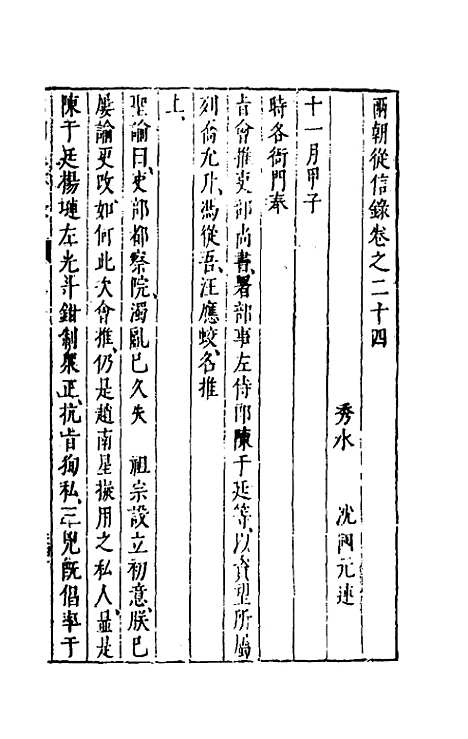 兩朝從信錄卷之二十四
秀水 沈國元述
十一月甲子
時各衙門奉
旨會推吏部尚書署部事左侍郎陳于廷等以資望所屬
列喬允升馮從吾汪應蛟名推
上
聖諭曰吏部都察院濁亂已久失 祖宗設立初意朕已
屢諭更改如何此次會推仍是趙南星擬用之私人显是
陳于廷楊漣左光斗鉗制眾正抗旨徇私三兇既倡率于